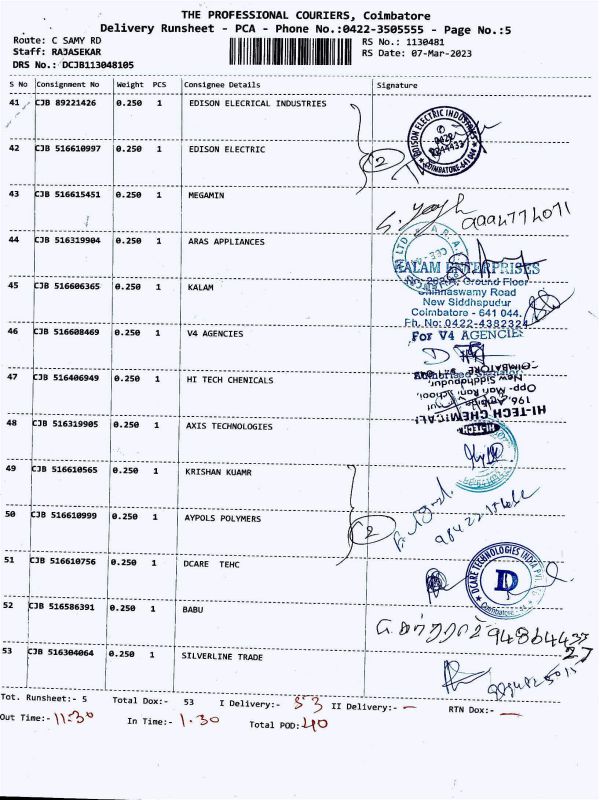 THE PROFESSIONAL COURIERS, Coimbatore
Delivery Runsheet - PCA - Phone No.:0422-3505555 - Page No.:5
Route: C SAMY RD
RS No.: 1130481
Staff: RAJASEKAR
RS Date: 07-Mar-2023
DRS No.: DCJB113048105
S No Consignment No Weight PCS Consignee Details Signature
41 CJB 89221426 0.250 1 EDISON ELECRICAL INDUSTRIES
42 CJB 516610997 0.250 1 EDISON ELECTRIC
2
43 CJB 516615451 0.250 1 MEGAMIN
44 CJB 516319904 0.250 1 ARAS APPLIANCES
KALAM ENTERPRISES
Ground Floor
Chinnaswamy Road
45 CJB 516606365 0.250 1 KALAM
New Siddhapudur
Coimbatore - 641 044.
Ph. No: 0422-4382324
46 CJB 516608469 0.250 1 V4 AGENCIES
For V4 AGENCIES
47 CJB 516406949 0.250 1 HI TECH CHENICALS
New Siddhapudur,
HI-TECH CHEMICAL
HI-TECH
48 CJB 516319905 0.250 1 AXIS TECHNOLOGIES
49 CJB 516610565 0.250 1 KRISHAN KUAMR
50 CJB 516610999 0.250 1 AYPOLS POLYMERS
2
51 CJB 516610756 0.250 1 DCARE TEHC
DCARE TECHNOLOGIES INDIA PVT
D
Coimbatore
52 CJB 516586391 0.250 1 BABU
53 CJB 516304064 0.250 1 SILVERLINE TRADE
Tot. Runsheet:- 5 Total Dox:- 53 I Delivery:- 53 II Delivery:- — RTN Dox:- —
Out Time:- 11:30 In Time:- 1.30 Total POD:- 40